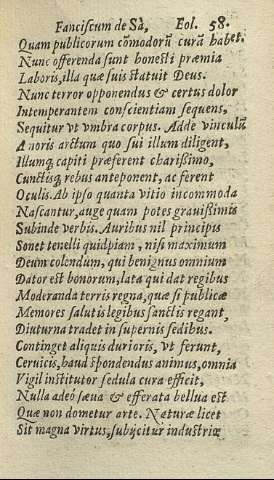 Fanciscum de Sà, Eol. 58.
Quam publicorum cōmodorū curā habet.
Nunc offerenda sunt honesti præmia
Laboris, illa quæ suis statuit Deus.
Nunc terror opponendus & certus dolor
Intemperantem conscientiam sequens,
Sequitur vt vmbra corpus. Adde vinculū
A noris arctum quo sui illum diligent,
Illumq; capiti præferent charissimo,
Cunctisq; rebus anteponent, ac ferent
Oculis. Ab ipso quanta vitio incommoda
Nascantur, auge quam potes grauissimis
Subinde verbis. Auribus nil principis
Sonet tenelli quidpiam, nisi maximum
Deum colendum, qui benignus omnium
Dator est bonorum, lata qui dat regibus
Moderanda terris regna, quæ si publicæ
Memores salutis legibus sanctis regant,
Diuturna tradet in supernis sedibus.
Continget aliquis durioris, vt ferunt,
Ceruicis, haud spondendus animus, omnia
Vigil institutor sedula cura efficit,
Nulla adeó sæua & efferata bellua est
Quæ non dometur arte. Naturæ licet
Sit magna virtus, subijcitur industriæ